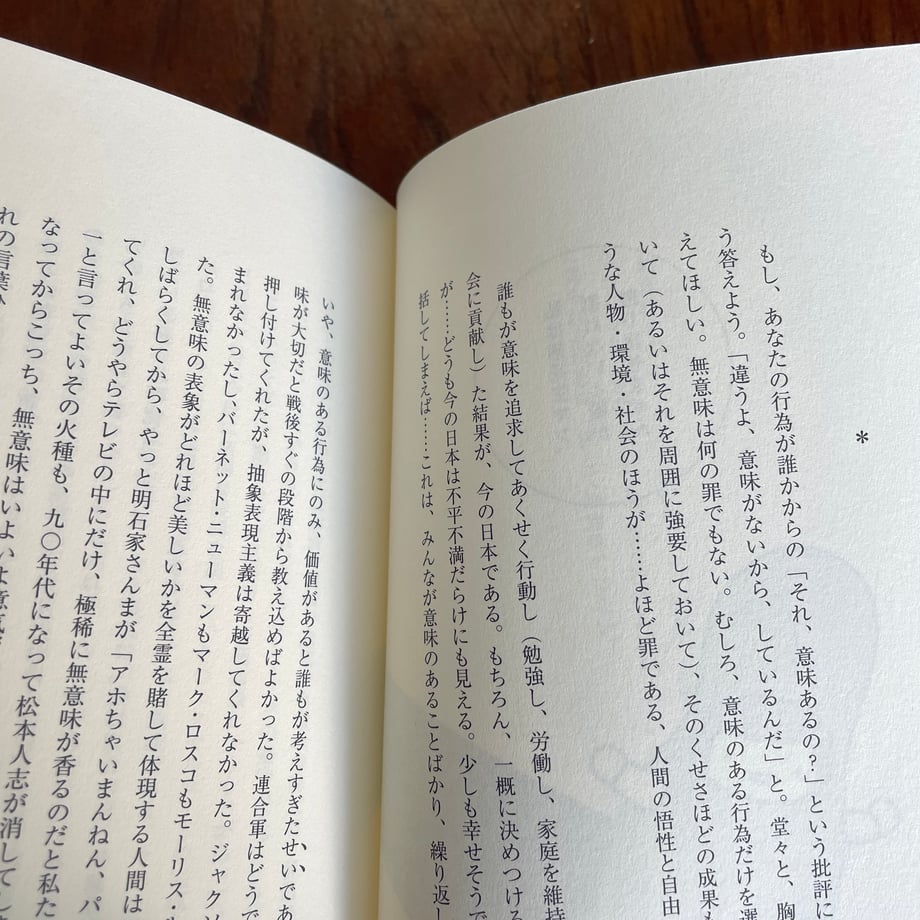 *
もし、あなたの行為が誰かからの「それ、意味あるの？」という批評に
う答えよう。「違うよ、意味がないから、しているんだ」と。堂々と、胸
えてほしい。無意味は何の罪でもない。むしろ、意味のある行為だけを選
いて（あるいはそれを周囲に強要しておいて）、そのくせさほどの成果も
うな人物・環境・社会のほうが……よほど罪である、人間の悟性と自由
誰もが意味を追求してあくせく行動し（勉強し、労働し、家庭を維持
会に貢献し）た結果が、今の日本である。もちろん、一概に決めつける
が……どうも今の日本は不平不満だらけにも見える。少しも幸せそうで
括してしまえば……これは、みんなが意味のあることばかり、繰り返し
いや、意味のある行為にのみ、価値があると誰もが考えすぎたせいであ
味が大切だと戦後すぐの段階から教え込めばよかった。連合軍はどうで
押し付けてくれたが、抽象表現主義は寄越してくれなかった。ジャクソ
まれなかったし、バーネット・ニューマンもマーク・ロスコもモーリス・ル
た。無意味の表象がどれほど美しいかを全霊を賭して体現する人間は
しばらくしてから、やっと明石家さんまが「アホちゃいまんねん、パ
てくれ、どうやらテレビの中にだけ、極稀に無意味が香るのだと私た
一と言ってよいその火種も、九〇年代になって松本人志が消してし
なってからこっち、無意味はいよいよ意気
れの言葉